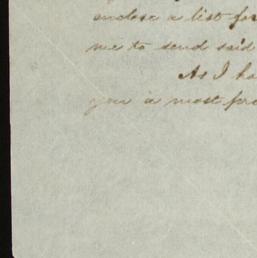 enclose a list for
me to send said
As I ha
you a most pro